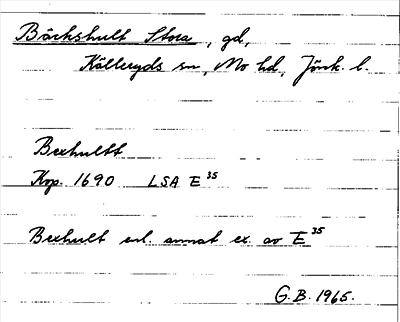 Bäckshult Stora, gd,
Källeryds sn, Mo hd, Jönk. l.
Bexhultt
Kop. 1690 LSA E 35
Bexhult enl. annat ex. av E 35
G.B. 1965.